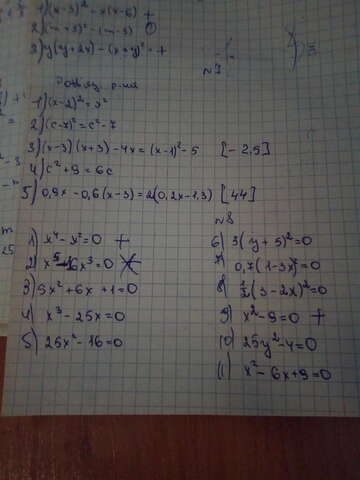 1) (x-3)² - x(x-6) +
2) (m+3)² - (m-3)
3) y(y+2x) - (x+y)² = +
N7
Розвяз. р-ння
1) (x-2)² = x²
2) (c-x)² = c² - 7
3) (x-3)(x+3) - 4x = (x-1)² - 5 [-2,5]
4) c² + 9 = 6c
5) 0,8x - 0,6(x-3) = 2(0,2x-1,3) [44]
N8
1) x⁴ - x² = 0 +
2) x⁵ - 16x³ = 0
3) 9x² + 6x + 1 = 0
4) x³ - 25x = 0
5) 25x² - 16 = 0
6) 3(y+5)² = 0
7) 0,7(1-3x)² = 0
8) ½(3-2x)² = 0
9) x² - 9 = 0 +
10) 25y² - 4 = 0
11) x² - 6x + 9 = 0